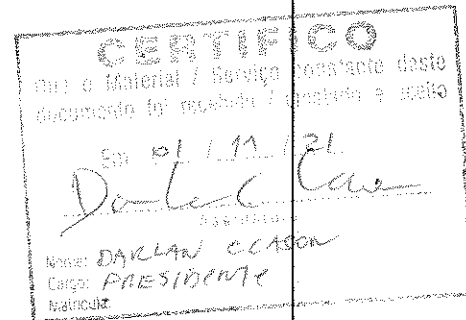 CERTIFICO
Que o Material / Serviço constante deste
documento foi recebido / prestado e aceito
Em 01 / 11 / 21
Assinatura
Nome: DARLAN
Cargo: PRESIDENTE
Matrícula: